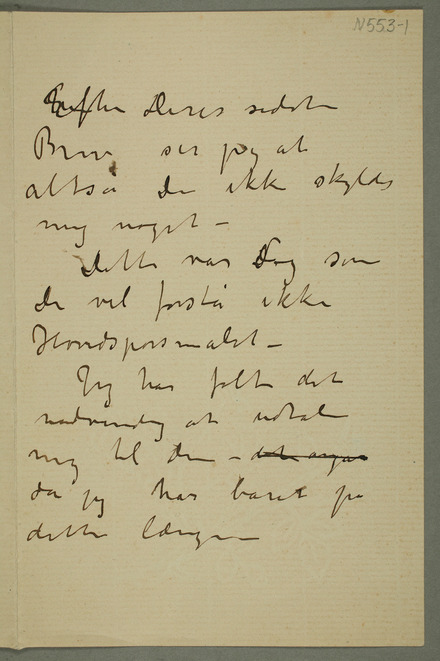 N553-1
Efter Deres sidste
Brev ser jeg at
altså De ikke skylder
mig noget –
Dette var Dog som
De vel forstå ikke
Hovedspørsmalet –
Jeg har følt det
nødvendig at udtale
mig til Dem –
da jeg har baret på
dette længe